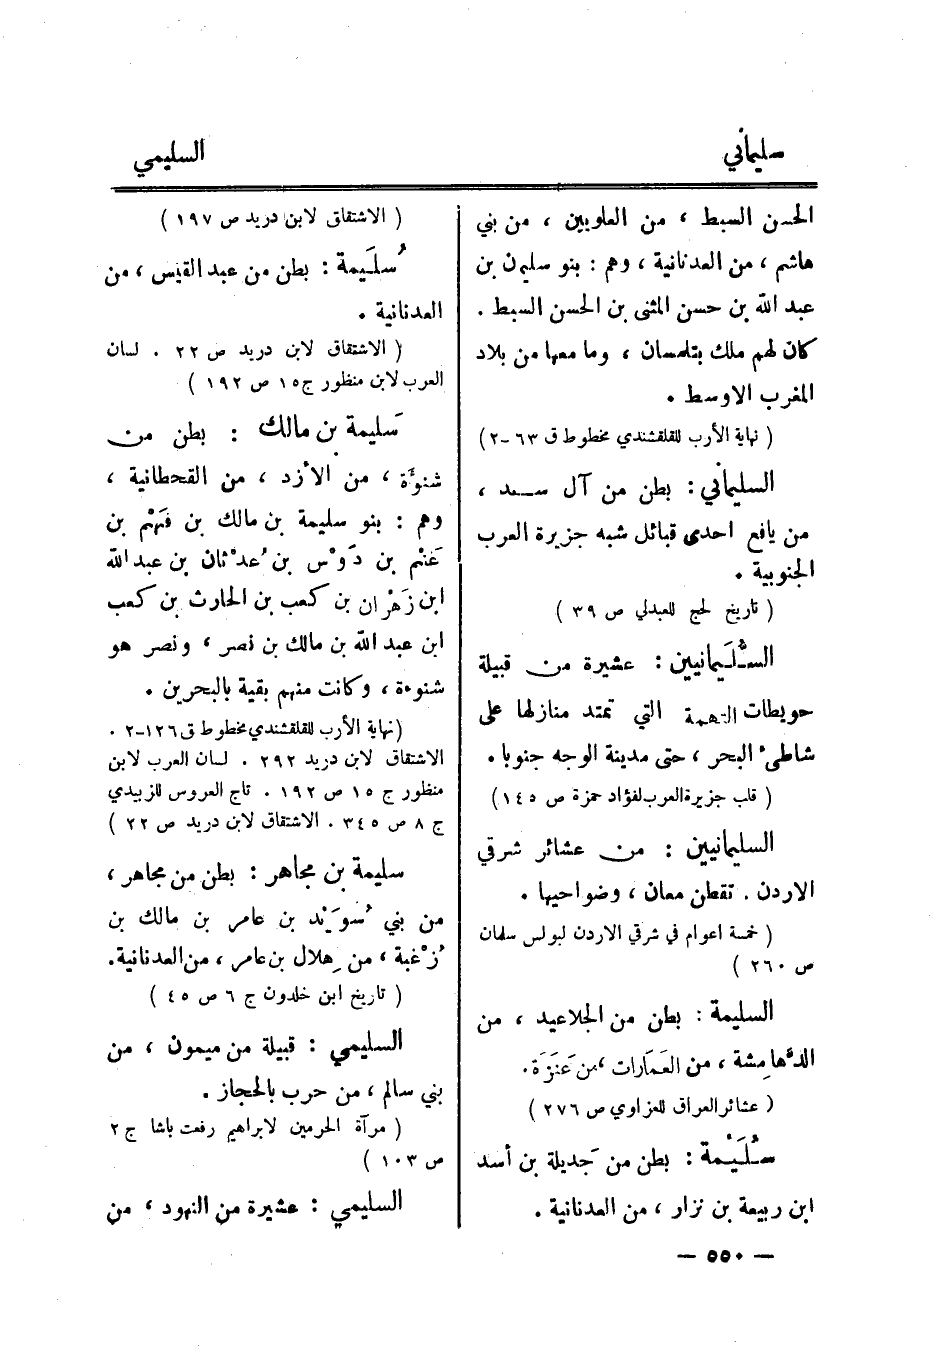 سليماني
السليمي
الحسن السبط ، من العلويين ، من بني
هاشم ، من العدنانية ، وهم : بنو سليمن بن
عبد الله بن حسن المثنى بن الحسن السبط .
كان لهم ملك بتلمسان ، وما معها من بلاد
المغرب الاوسط .
( نهاية الأرب للقلقشندي مخطوط ق ٦٣ -٢)
السليماني : بطن من آل ســد ،
من يافع احدى قبائل شبه جزيرة العرب
الجنوبية .
( تاريخ لحج للعبدلي ص ٣٩ )
السُّلَيمانيين : عشيرة من قبيلة
حويطات التهمة التي تمتد منازلها على
شاطىء البحر ، حتى مدينة الوجه جنوبا .
( قلب جزيرة العرب لفؤاد حمزة ص ١٤٥ )
السليمانيين : من عشائر شرقي
الاردن . تقطن معان ، وضواحيها .
( خمسة اعوام في شرقي الاردن لبولس سلمان
ص ٢٦٠ )
السليمة : بطن من الجلاعيد ، من
الدَّهامِشة ، من العَمَارات ، من عَنَزَة .
( عشائر العراق للعزاوي ص ٢٧٦ )
سُلَيْمة : بطن من جَديلة بن أسد
ابن ربيعة بن نزار ، من العدنانية .
( الاشتقاق لابن دريد ص ١٩٧ )
سُلَيمة : بطن من عبد القيس ، من
العدنانية .
( الاشتقاق لابن دريد ص ٢٢ . لسان
العرب لابن منظور ج ١٥ ص ١٩٢ )
سَليمة بن مالك : بطن من
شنوأة ، من الأزد ، من القحطانية ،
وهم : بنو سليمة بن مالك بن فَهْم بن
غَنْم بن دَوْس بن عُدْثان بن عبد الله
ابن زَهْران بن كعب بن الحارث بن كعب
ابن عبد الله بن مالك بن نصر ، ونصر هو
شنوءة ، وكانت منهم بقية بالبحرين .
(نهاية الأرب للقلقشندي مخطوط ق ١٢٦-٢ .
الاشتقاق لابن دريد ٢٩٢ . لسان العرب لابن
منظور ج ١٥ ص ١٩٢ . تاج العروس للزبيدي
ج ٨ ص ٣٤٥ . الاشتقاق لابن دريد ص ٢٢ )
سليمة بن مجاهر : بطن من مجاهر ،
من بني سُوَيْد بن عامر بن مالك بن
زُغْبة ، من هِلال بن عامر ، من العدنانية .
( تاريخ ابن خلدون ج ٦ ص ٤٥ )
السليمي : قبيلة من ميمون ، من
بني سالم ، من حرب بالحجاز .
( مرآة الحرمين لابراهيم رفعت باشا ج ٢
ص ١٠٣ )
السليمي : عشيرة من النهود ، من
— ٥٥٠ —